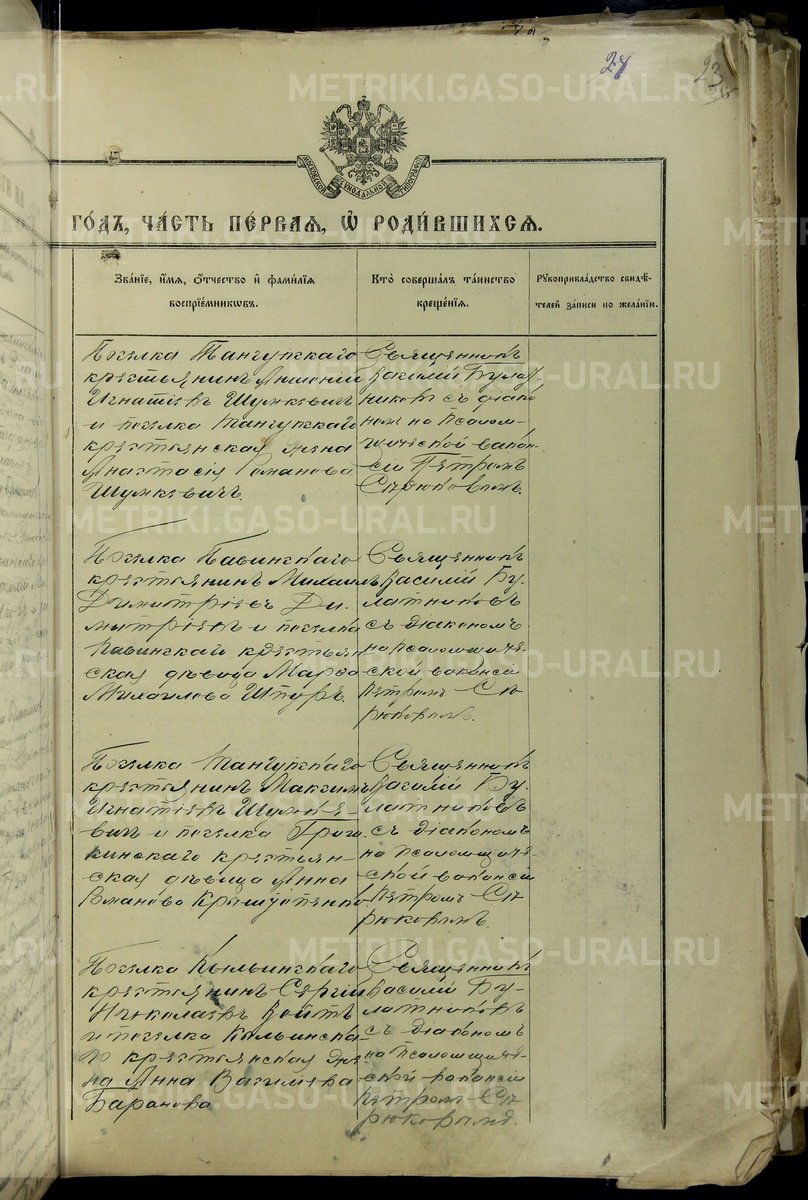 24
23
МОСКОВСКОЙ СѴНОДАЛЬНОЙ ТИПОГРАФІИ
ГО́ДЪ, ЧА́СТЬ ПЕ́РВАЯ, Ѡ РОДИ́ВШИХСЯ.
Зва́нїе, и́мя, ѻ́тчество и҆ фами́лїя
воспрїе́мникѡвъ.
Кто̀ соверша́лъ та́инство
креще́нїя.
Рꙋкоприкла́дство свидѣ́-
телей за́писи по жела́нїю.
Поселка Тангупскаго
крестьянинъ
Игнатіевъ Шумкевичъ
и поселка Тангупскаго
крестьянская жена
Анастасія Романова
Шумкевичъ.
Священникъ
Василій Булат-
никовъ съ діако-
номъ на псалом-
щической вакан-
сіи Петромъ
Стрюковымъ.
Поселка Павинскаго
крестьянинъ Михаилъ
Димитріевъ Ди-
митріевъ и поселка
Павинскаго крестьян
ская дѣвица Марѳа
Михаилова Шпуръ.
Священникъ
Василій Бу-
латниковъ
съ діакономъ
на псаломщиче-
ской вакансіи
Петромъ Ст
рюковымъ.
Поселка Тангупскаго
крестьянинъ Максимъ
Игнатіевъ Шумке-
вичъ и поселка
кинскаго крестьян-
ская дѣвица Анна
Романова
Священникъ
Василій Бу-
латниковъ
съ діакономъ
на псаломщиче-
ской вакансіи
Петромъ Ст
рюковымъ.
Поселка Кыльинскаго
крестьянинъ Сергій
Николаевъ Войтъ
и поселка Кыльинска-
го крестьянская же-
на Анна Василіева
Баранова.
Священникъ
Василій Бу-
латниковъ
съ діакономъ
на псаломщиче-
ской вакансіи
Петромъ Ст
рюковымъ.
METRIKI.GASO-URAL.RU